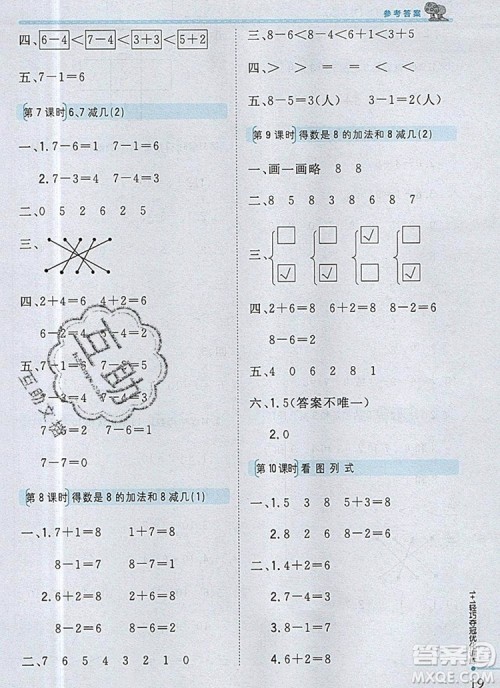 参考答案
四、6－4＜7－4＜3＋3＜5＋2
五、7－1＝6
第7课时 6、7减几(2)
一、1.7－6＝1 7－1＝6
2.7－3＝4 7－4＝3
二、0 5 2 6 2 5
三、
四、2＋4＝6 4＋2＝6
6－2＝4 6－4＝2
五、7－2＝5 7－5＝2
7－3＝4 7－4＝3
7－0＝7 7－7＝0
7－1＝6
第8课时 得数是8的加法和8减几(1)
一、1.7＋1＝8 1＋7＝8
8－1＝7 8－7＝1
2.6＋2＝8 2＋6＝8
8－2＝6 8－6＝2
二、7 6 5 4 3 2 1 0
三、8－6＜8－5＜8－3＜8－1
四、＞ ＞ ＝ ＞ ＜ ＜
五、8－5＝3(人) 3－1＝2(人)
第9课时 得数是8的加法和8减几(2)
一、画一画略 3 8 8
二、4 8 5 8 3 8 6 8 7
三、
四、2＋6＝8 6＋2＝8 8－2＝6
8－6＝2
五、4 0 6 2 8 1
六、1.5(答案不唯一)
2.0
第10课时 看图列式
一、1.5 3 8 5＋3＝8
2.8 2 6 8－2＝6
二、1.4＋4＝8
2.8－6＝2
互助
互助文档
1＋1轻巧夺冠优化训练
答案圈
MXQE.COM
19